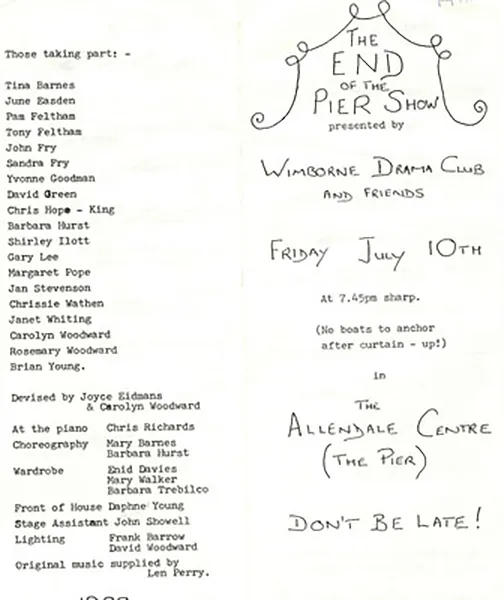 Those taking part: -
Tina Barnes
June Easden
Pam Feltham
Tony Feltham
John Fry
Sandra Fry
Yvonne Goodman
David Green
Chris Hope - King
Barbara Hurst
Shirley Ilott
Gary Lee
Margaret Pope
Jan Stevenson
Chrissie Wathen
Janet Whiting
Carolyn Woodward
Rosemary Woodward
Brian Young.
Devised by Joyce Eidmans
& Carolyn Woodward
At the piano Chris Richards
Choreography Mary Barnes
Barbara Hurst
Wardrobe Enid Davies
Mary Walker
Barbara Trebilco
Front of House Daphne Young
Stage Assistant John Showell
Lighting Frank Barrow
David Woodward
Original music supplied by
Len Perry.
THE
END
OF THE
PIER SHOW
presented by
WIMBORNE DRAMA CLUB
AND FRIENDS
FRIDAY JULY 10TH
At 7.45pm sharp.
(No boats to anchor
after curtain - up!)
in
THE
ALLENDALE CENTRE
(THE PIER)
DON'T BE LATE!